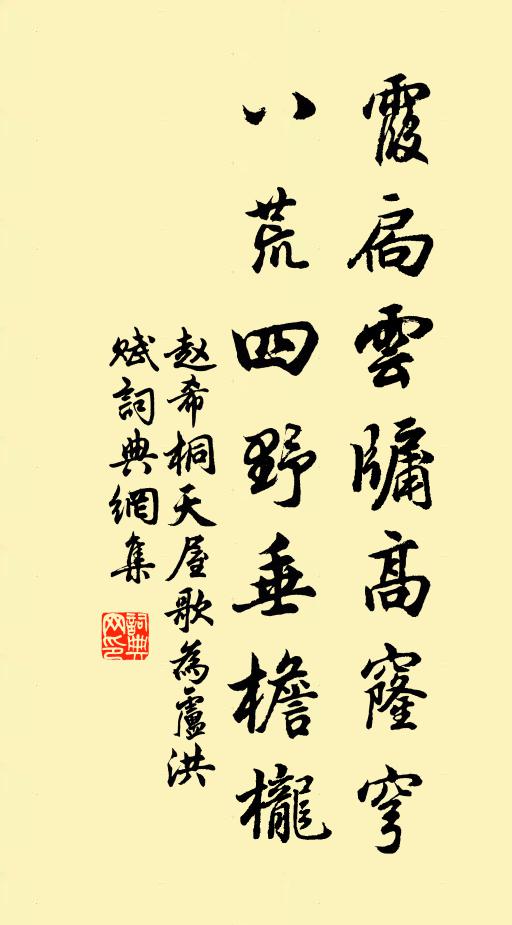 霞扃雲牖高窿穹
八荒四野垂檐櫳
赵希桐天屋歌為盧洪
赋詞典網集
詞典网印